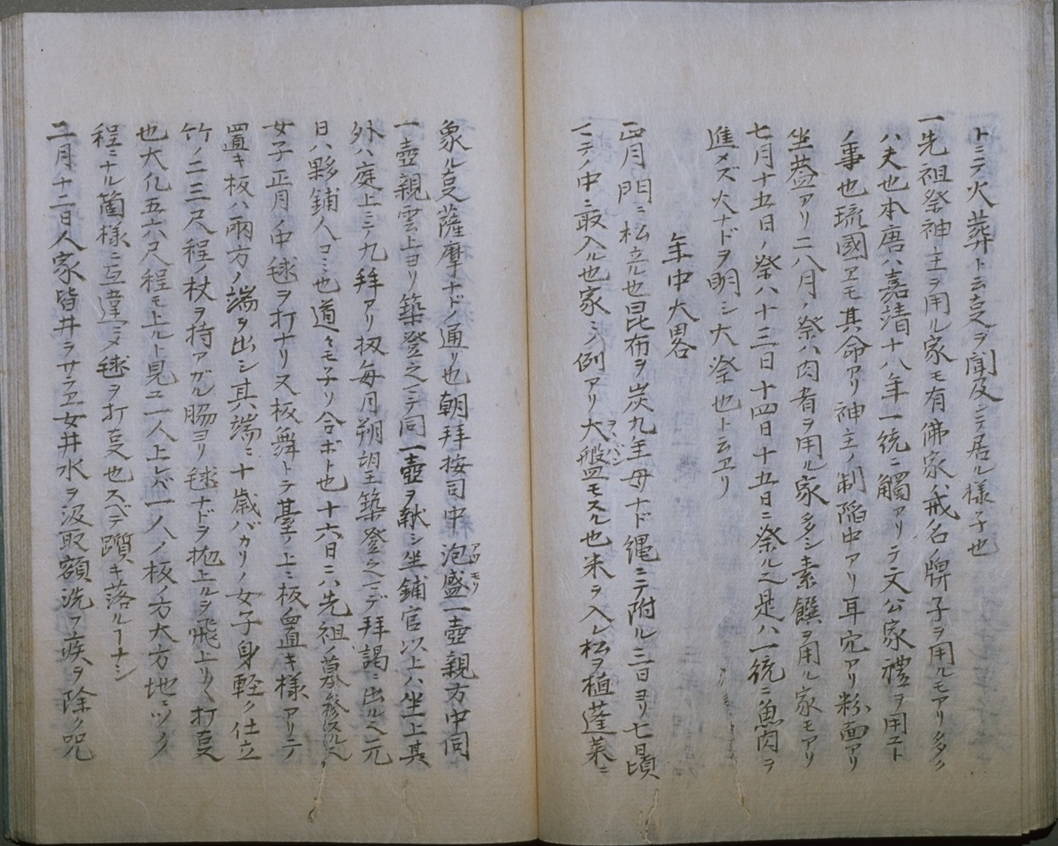 トテ火葬ト云之ヲ聞及シテ居ル様子也
一先祖祭神主ヲ用ル家モ有佛家ハ戒名牌子ヲ用ルモアリ多ク
ハ夫也本唐ハ嘉清十八年一統ニ觸アリテ文公家禮ヲ用ユト
ノ事也琉國エモ其命アリ神主ノ制陥中アリ耳穴アリ粉面アリ
坐葢アリ二八月ノ祭ハ肉者ヲ用ル家多シ素饌ヲ用ル家モアリ
七月十五日ノ祭ハ十三日十四日十五日ニ祭ル之是ハ一統ニ魚肉ヲ
進メズ火ナドヲ明シ大祭也ト云エリ
年中大畧
正月門ニ松立ル也昆布ヲ炭九年母ナド縄ニテ附ル三日ヨリ七日頃
ニテノ中ニ最入ル也家ニヨリ例アリ大盤モスル也米ヲ入レ松ヲ植蓬莱ニ
象ル䒭薩摩ナドノ通リ也朝拜按司中泡盛一壺親方中同
一壺親雲上ヨリ築登之マテ同一壺ヲ献シ坐鋪官以上ハ坐上其
外ハ庭上ニ九拜アリ扨毎月朔望築登之マデ拜謁ニ出ル也元
日ハ夥鋪人コミ也道々モ子リ合ホト也十六日ニハ先祖ノ墓參
女子正月ノ中毬ヲ打ナリ又板舞トテ䑓ノ上ニ板ヲ置キ様アリテ
置キ板ハ兩方ノ端ヲ出シ其端ニ十歳バカリノ女子身軽ク仕立
竹ノ二三尺程ノ杖ヲ持アガル脇ヨリ毬ナドヲ抛上ルヲ飛上リ〱打䒭
也大化五六尺程モ上ルト見ユ一人上レバ一人ノ板ノ方大方地ニツク
程ニナル箇様ニ互違ニメ毬ヲ打䒭也スベテ躓キ落ルヿナシ
二月十二日人家皆井ヲサラヱ女井水ヲ汲取額洗フ疾ヲ除ク咒